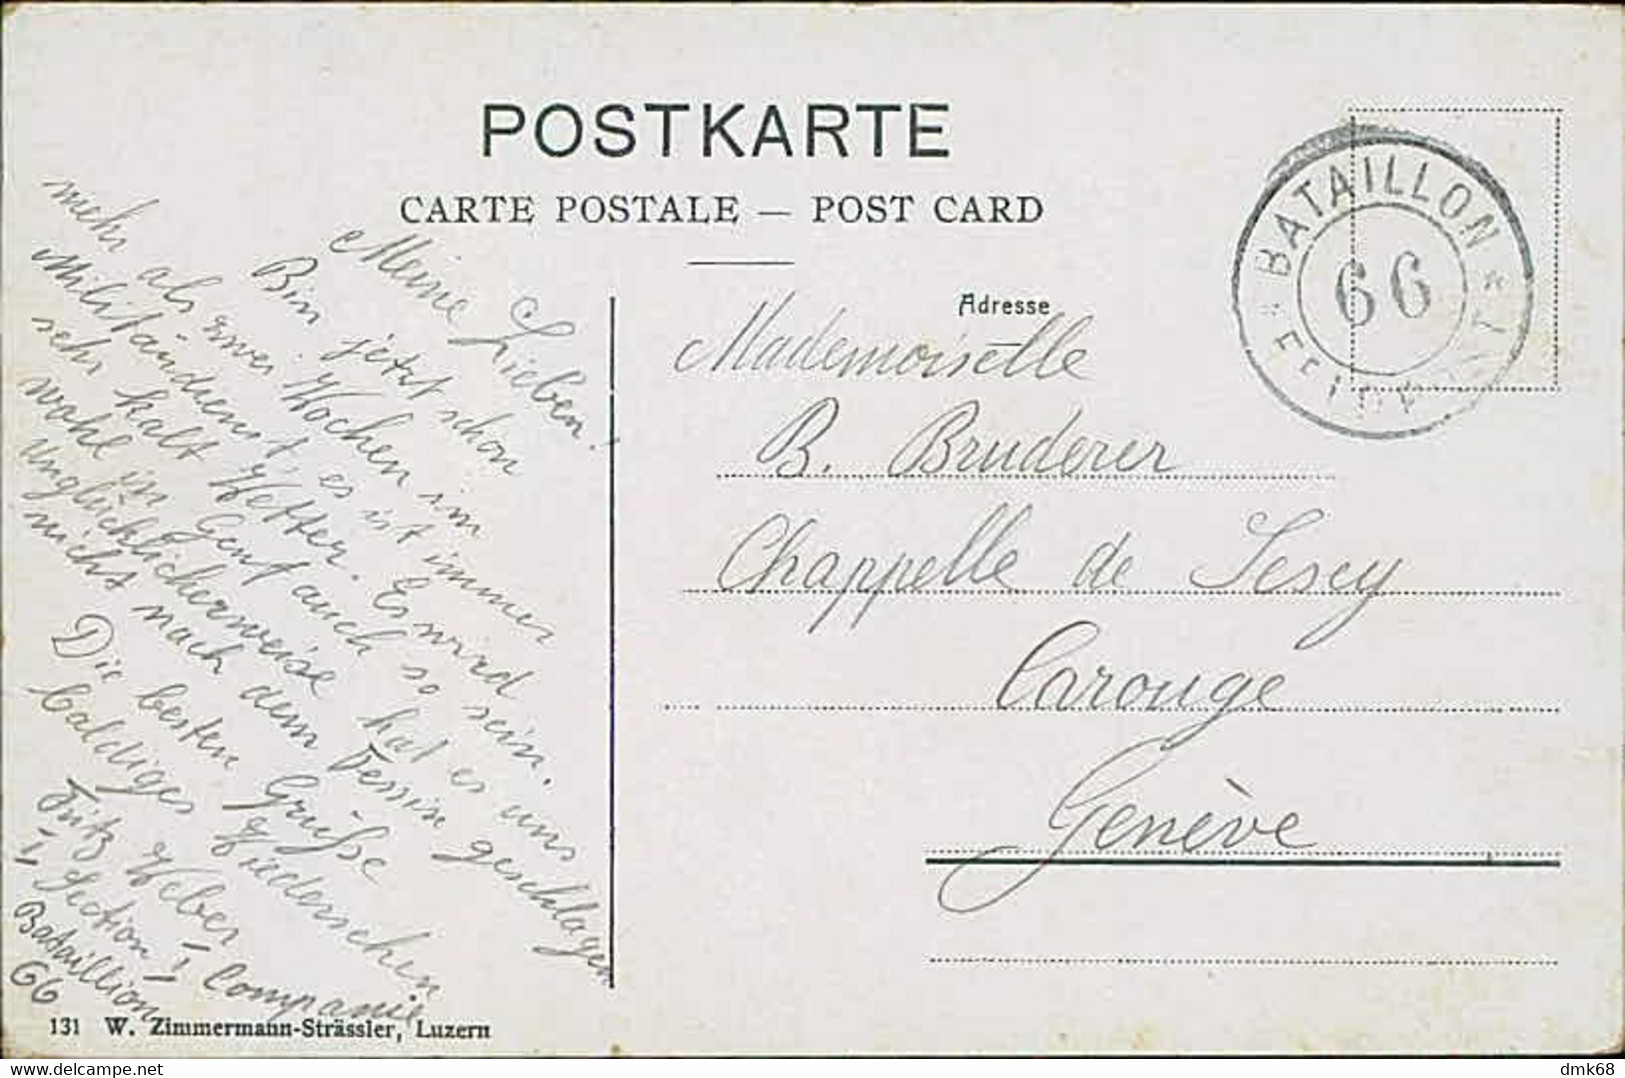 POSTKARTE
CARTE POSTALE — POST CARD
BATAILLON
66
FELDPOST
Adresse
Mademoiselle
B. Bruderer
Chappelle de Sescy
Carouge
Genève
Meine Lieben!
Bin jetzt schon
mehr als zwei Wochen im
Militärdienst, es ist immer
sehr kalt Wetter. Es wird
wohl in Genf auch so sein.
Unglücklicherweise hat es uns
nicht nach dem Tessin geschlagen
Die besten Grüße
baldiges Wiedersehen
Fritz Weber
I, Section I Compagnie
Bataillion
66
131 W. Zimmermann-Strässler, Luzern
delcampe.net
dmk68